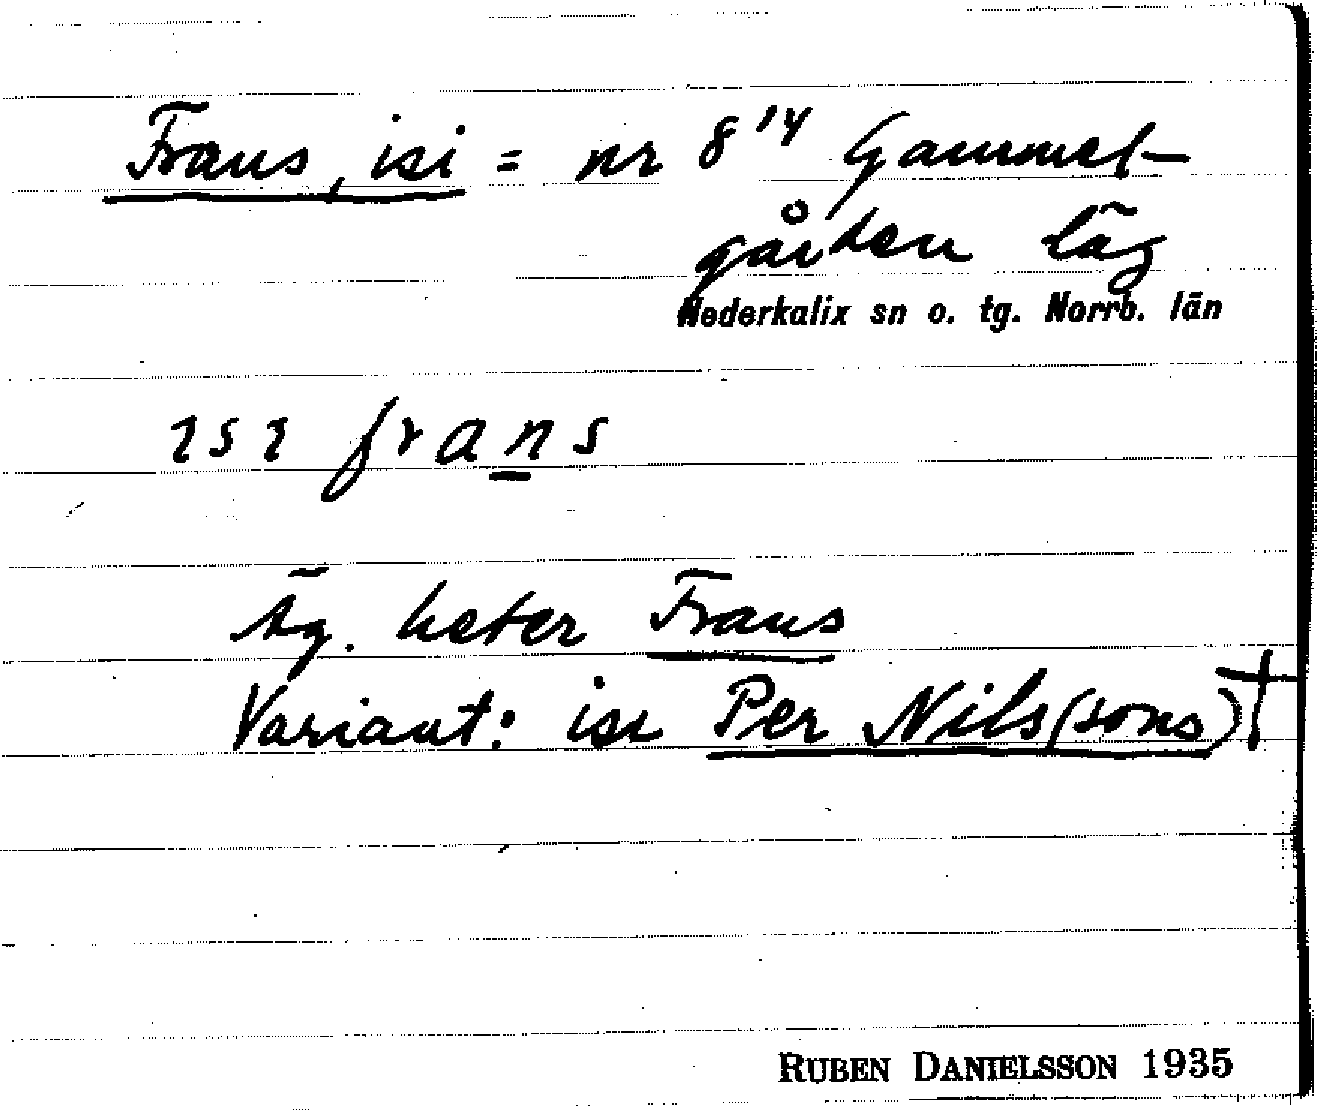 Frans, isi = nr 8¹⁴ Gammel-
gården läg
Nederkalix sn o. tg. Norrb. län
ɩsɩ frans
Äg. heter Frans
Variant: isi Per Nils(sons)†
RUBEN DANIELSSON 1935